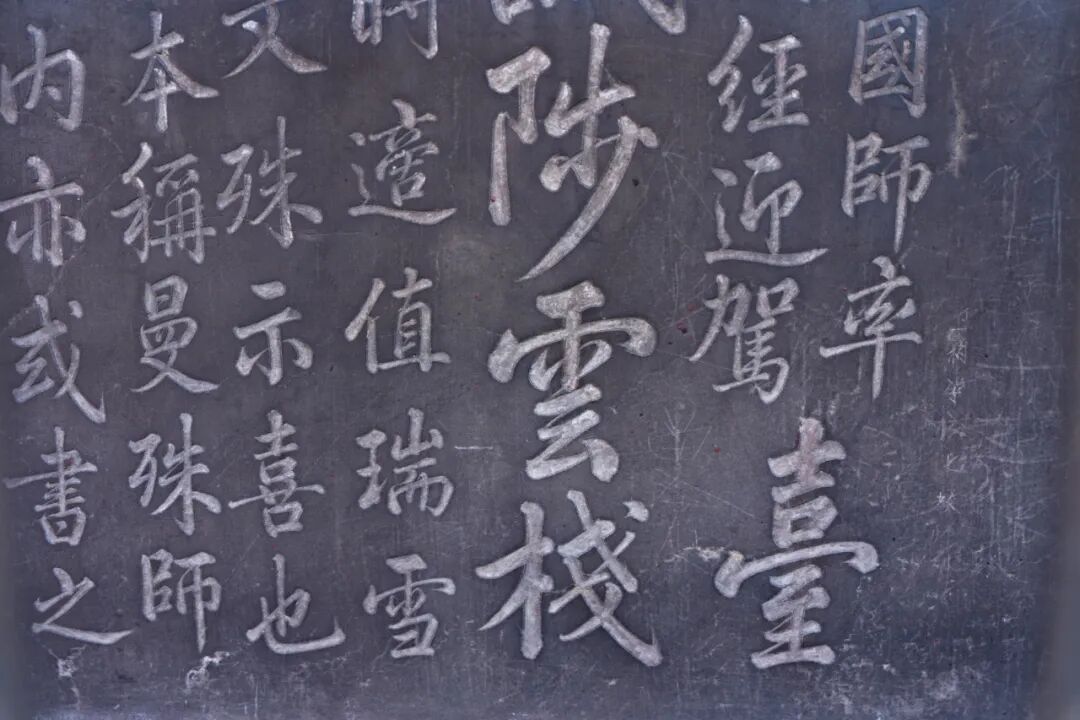 國師率
經迎駕
臺
陟雲棧
時適值瑞雪
文殊示喜也
本稱曼殊師
内亦或書之